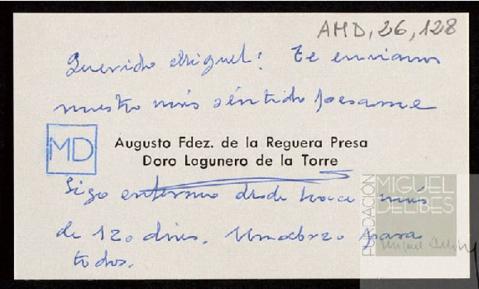 AMD, 26, 128
Querido Miguel: Te enviamos
nuestro más sentido pesame
MD
Augusto Fdez. de la Reguera Presa
Doro Lagunero de la Torre
Sigo enfermo desde hace más
de 120 dias. Un abrazo para
todos.
FUNDACIÓN
MIGUEL
DELIBES